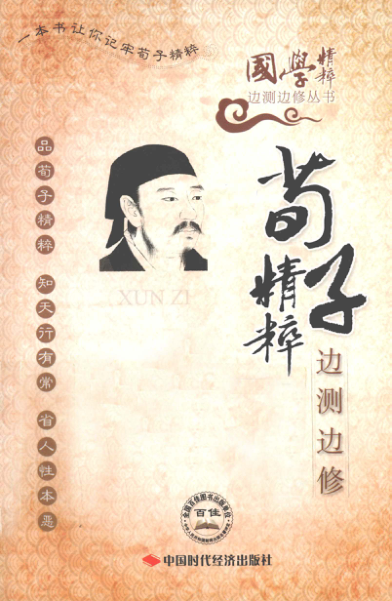 一本书让你记牢荀子精粹
國學精粹
边测边修丛书
荀子
精粹
边测边修
XUN ZI
品荀子精粹 知天行有常 省人性本恶
全国百佳图书出版单位
百佳
中国时代经济出版社